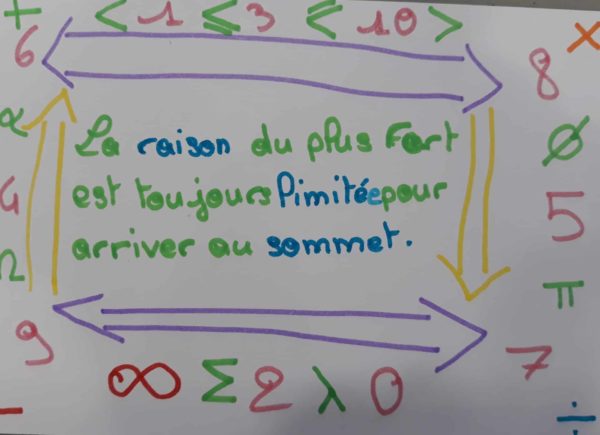 + < 1 ≤ 3 ≤ 10 >
6 8 ×
La raison du plus Fort
est toujours limitée pour
arriver au sommet.
α ∅
4 5
Ω π
9 7
∞ Σ 2 λ 0
− ÷